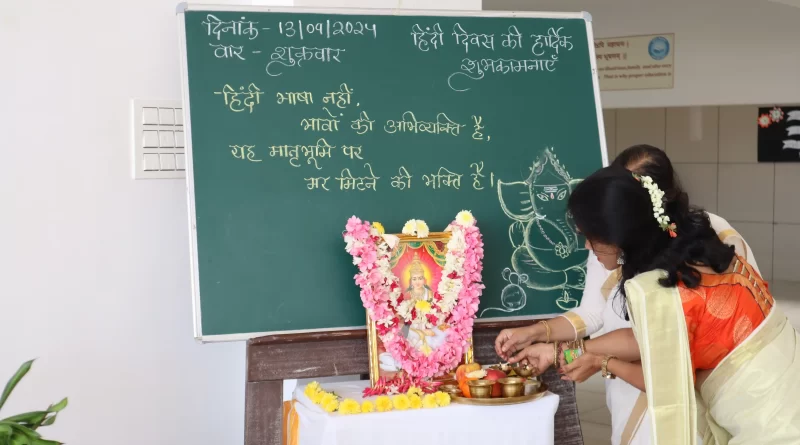 दिनांक- 13/09/2024
वार - शुक्रवार
हिंदी दिवस की हार्दिक
शुभकामनाएँ
-हिंदी भाषा नहीं,
भावों की अभिव्यक्ति है,
यह मातृभूमि पर
मर मिटने की भक्ति है।